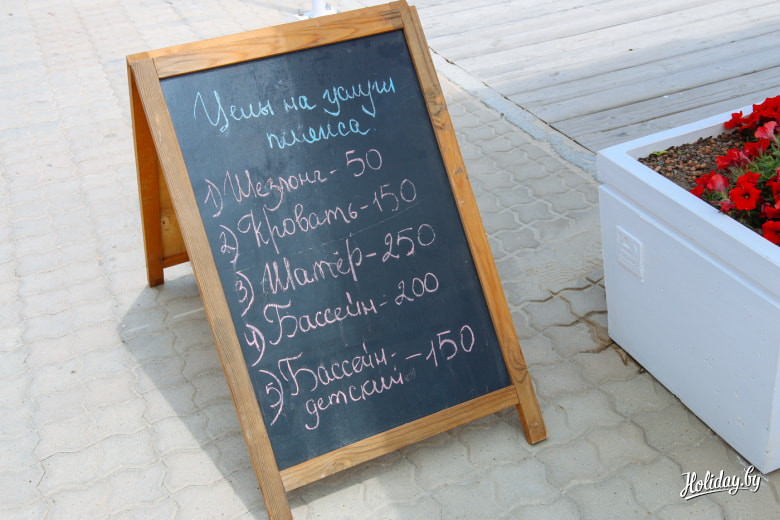 Цены на услуги
пляжа.
1) Шезлонг - 50
2) Кровать - 150
3) Шатёр - 250
4) Бассейн - 200
5) Бассейн - 150
детский
Holiday.by